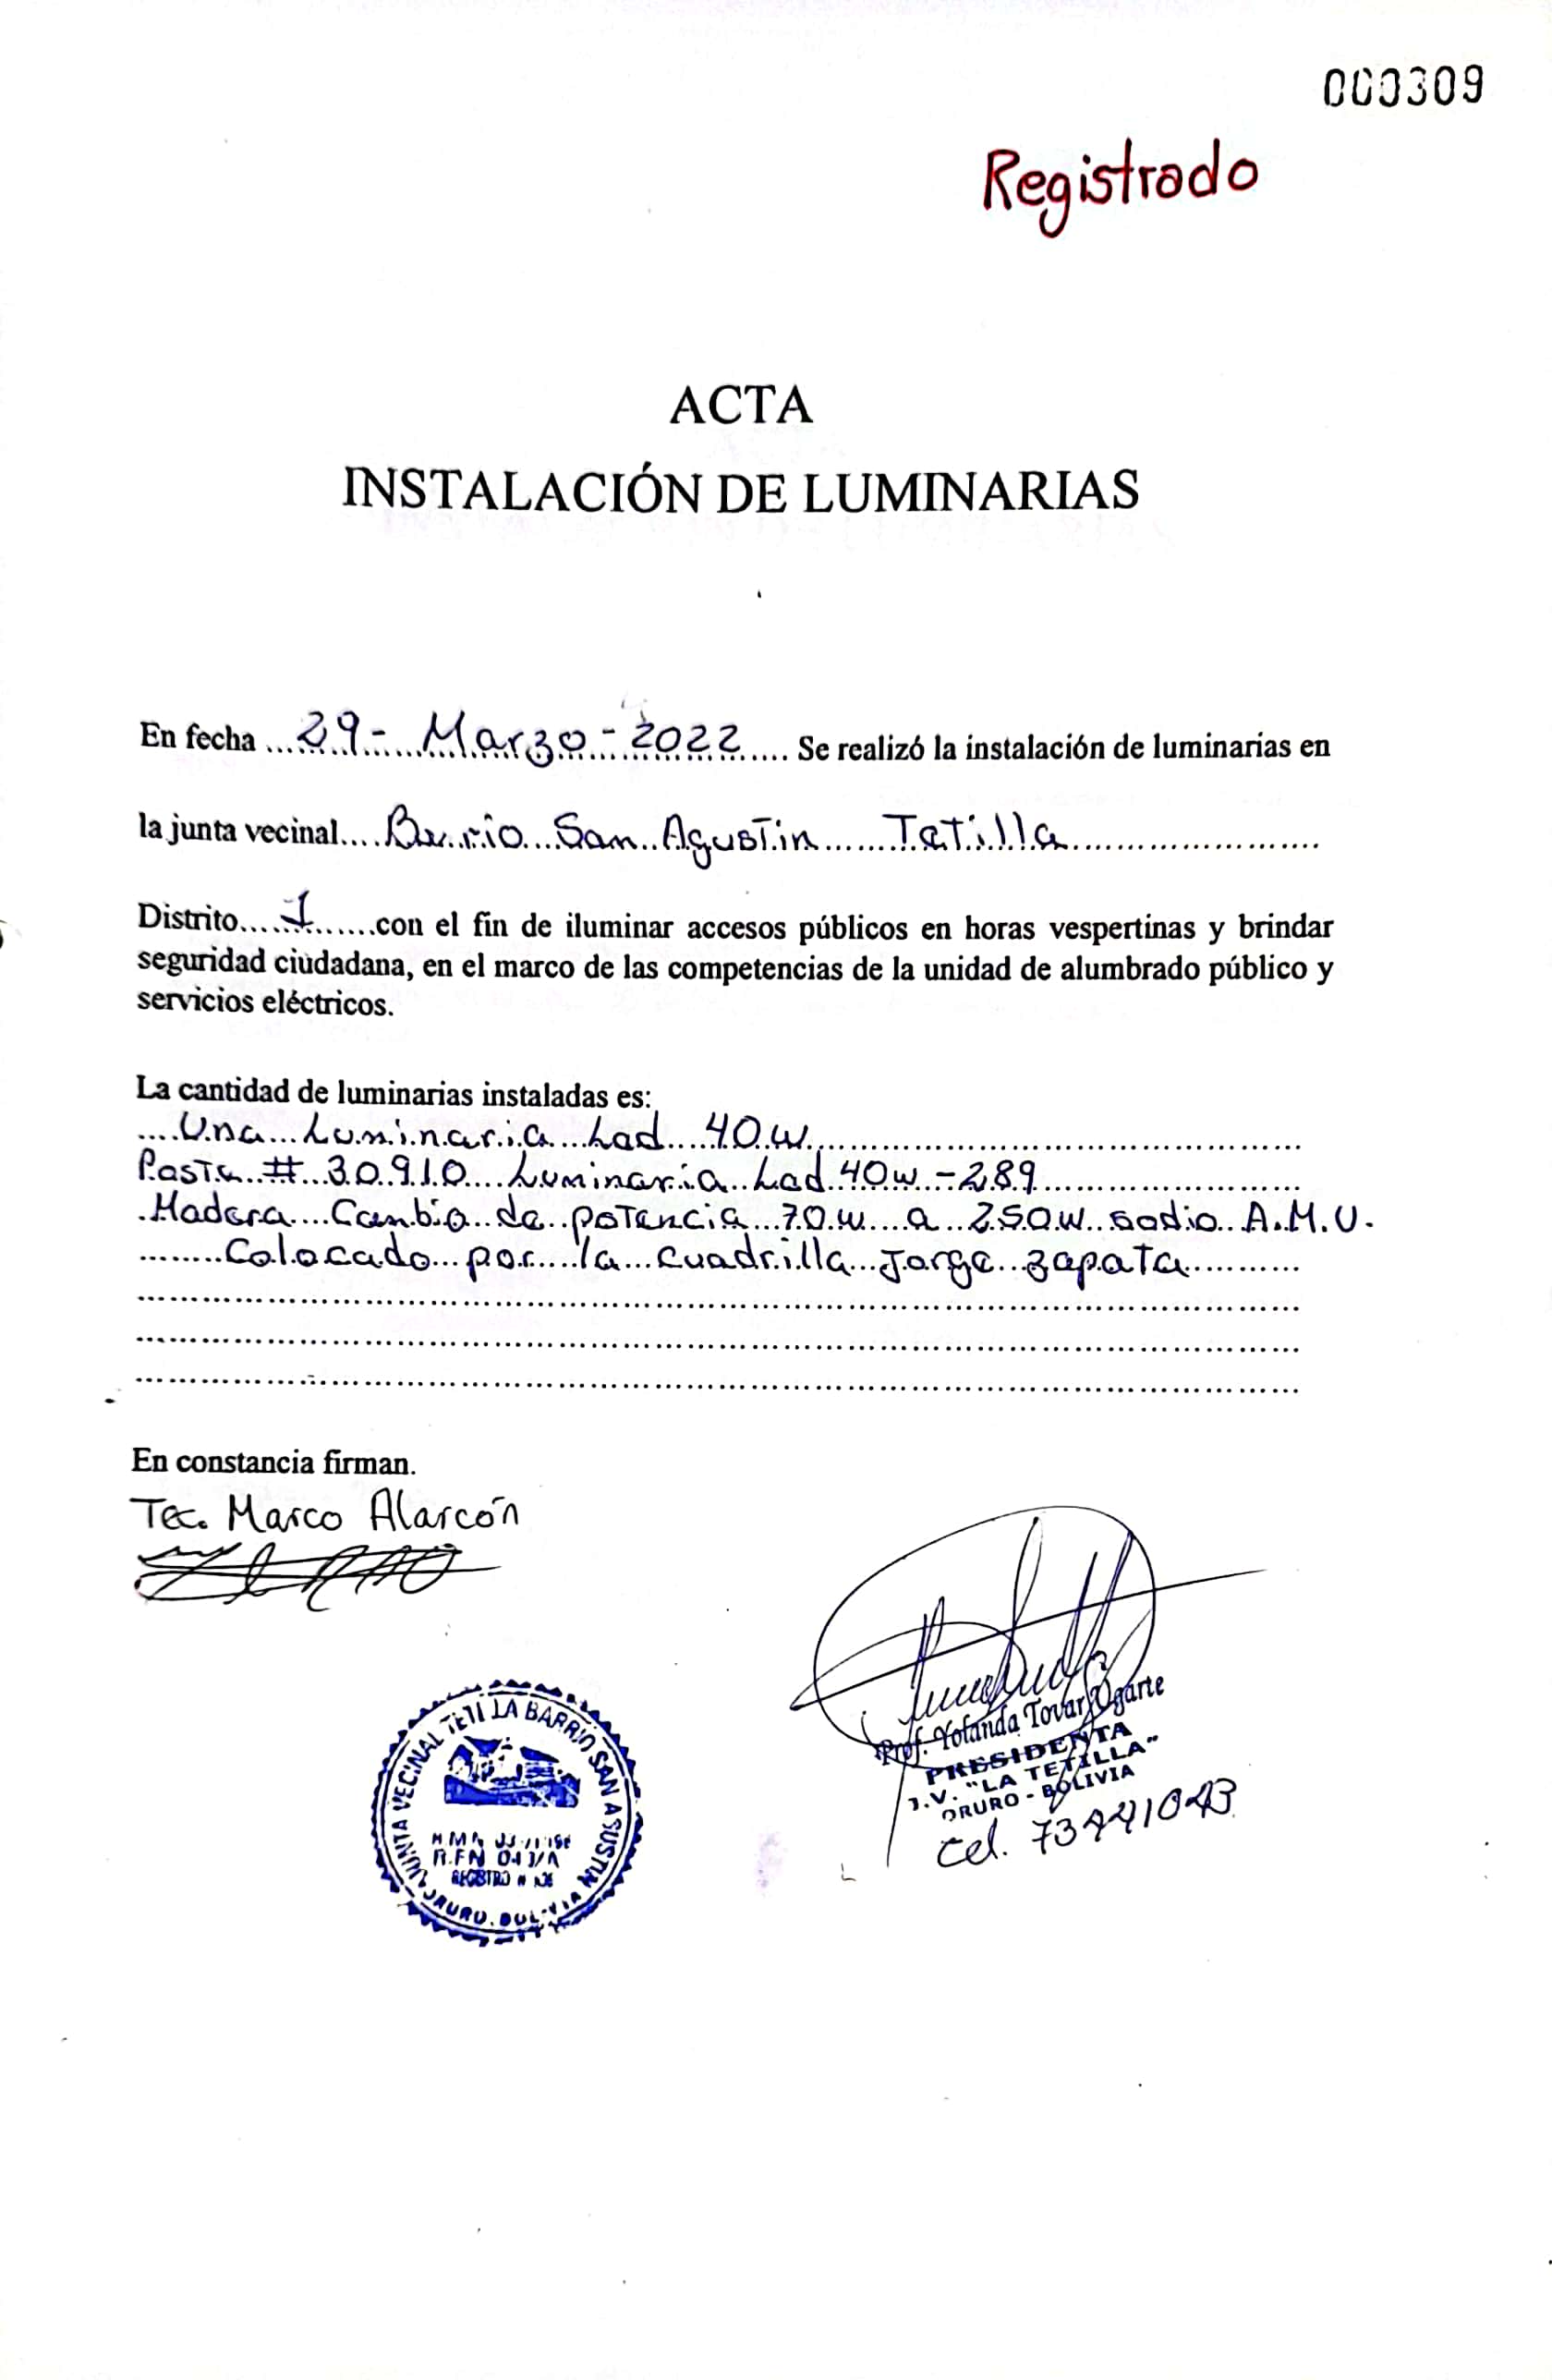 000309
Registrado
ACTA
INSTALACIÓN DE LUMINARIAS
En fecha ... 29 - Marzo - 2022 .... Se realizó la instalación de luminarias en
la junta vecinal.... Barrio San Agustin Tetilla
Distrito.... 1 ......con el fin de iluminar accesos públicos en horas vespertinas y brindar
seguridad ciudadana, en el marco de las competencias de la unidad de alumbrado público y
servicios eléctricos.
La cantidad de luminarias instaladas es:
Una Luminaria Led 40w
Poste # 30910 Luminaria Led 40w - 289
Madera Cambio de potencia 70w a 250w sodio A.M.U.
Colocado por la cuadrilla Jorge zapata
En constancia firman.
Tec. Marco Alarcón
Prof. Yolanda Tovar Ugarte
PRESIDENTA
J.V. "LA TETILLA"
ORURO - BOLIVIA
cel. 73441043
JUNTA VECINAL TETILLA BARRIO SAN AGUSTIN
ORURO. BOLIVIA